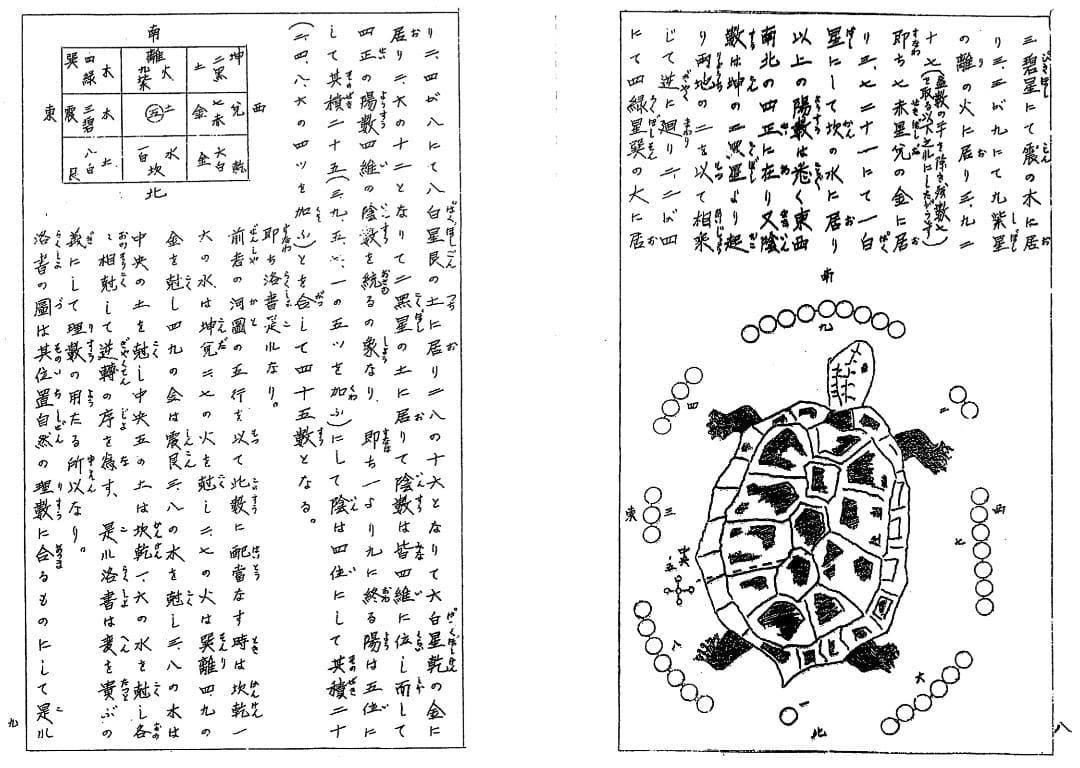 三碧星にて震の木に居
り三、三が九にて九紫星
の離の火に居り三、九二
十七(盈数の
を除き残数七
と取る以下之ルにしたがうす)
即ち七赤星兌の金に居
り三、七二十一にて一白
星にして坎の水に居り
以上の陽數は悉く東西
南北の四正に在り又陰
數は坤の二黒星より起
り両地の二を以て相乗
じて逆に廻り二、二が四
にて四緑星巽の木に居
南
九
四
二
東 三
西 七
中央 五
八
六
一
北
八
南
巽 四緑 木
離 九紫 火
坤 二黒 土
東
震 三碧 木
五 土
兌 七赤 金
西
艮 八白 土
一白 水 坎
乾 六白 金
北
り二、四が八にて八白星艮の土に居り二八の十六となりて六白星乾の金に
居り二、六の十二となりて二黒星の土に居りて陰數は皆四維に位し而して
四正の陽數四維の陰數を統るの象なり、即ち一より九に終る陽は五位に
して其積二十五(三、九、五、七、一の五ツを加ふ)にして陰は四位にして其積二十
(二、四、八、六の四ツを加ふ)とを合して四十五數となる。
即ち洛書是ルなり。
前者の河圖の五行を以て此數に配當なす時は坎乾一
六の水は坤兌二、七の火を尅し二、七の火は巽離四九の
金を尅し四九の金は震艮三、八の木を尅し三、八の木は
中央の土を尅し中央五の土は坎乾一、六の水を尅し各
々相尅して逆轉の序を為す、是ル洛書は変を貴ぶの
義にして理數の用たる所以なり。
洛書の圖は其位置自然の理數に合るものにして是ル
九